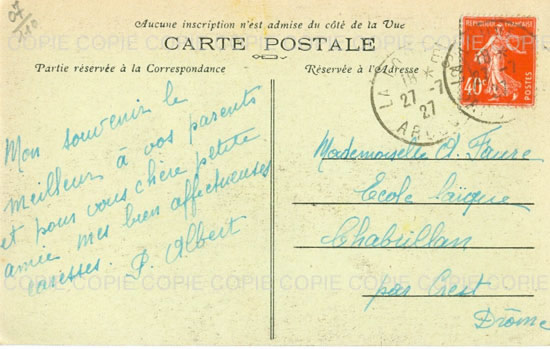 Aucune inscription n'est admise du côté de la Vue
CARTE POSTALE
Partie réservée à la Correspondance
Réservée à l'Adresse
REPUBLIQUE FRANÇAISE
40c
POSTES
27-7
27
Mon souvenir le
meilleur à vos parents
et pour vous chère petite
amie mes bien affectueuses
caresses. P. Albert
Mademoiselle A. Faure
Ecole laïque
Chabrillan
par Crest
Drôme
COPIE COPIE COPIE COPIE COPIE COPIE COPIE
COPIE COPIE COPIE COPIE COPIE COPIE COPIE